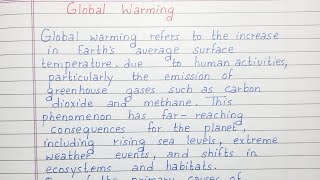 Global Warming
Global warming refers to the increase
in Earth's average surface
temperature due to human activities,
particularly the emission of
greenhouse gases such as carbon
dioxide and methane. This
phenomenon has far-reaching
consequences for the planet,
including rising sea levels, extreme
weather events, and shifts in
ecosystems and habitats.
the primary causes of